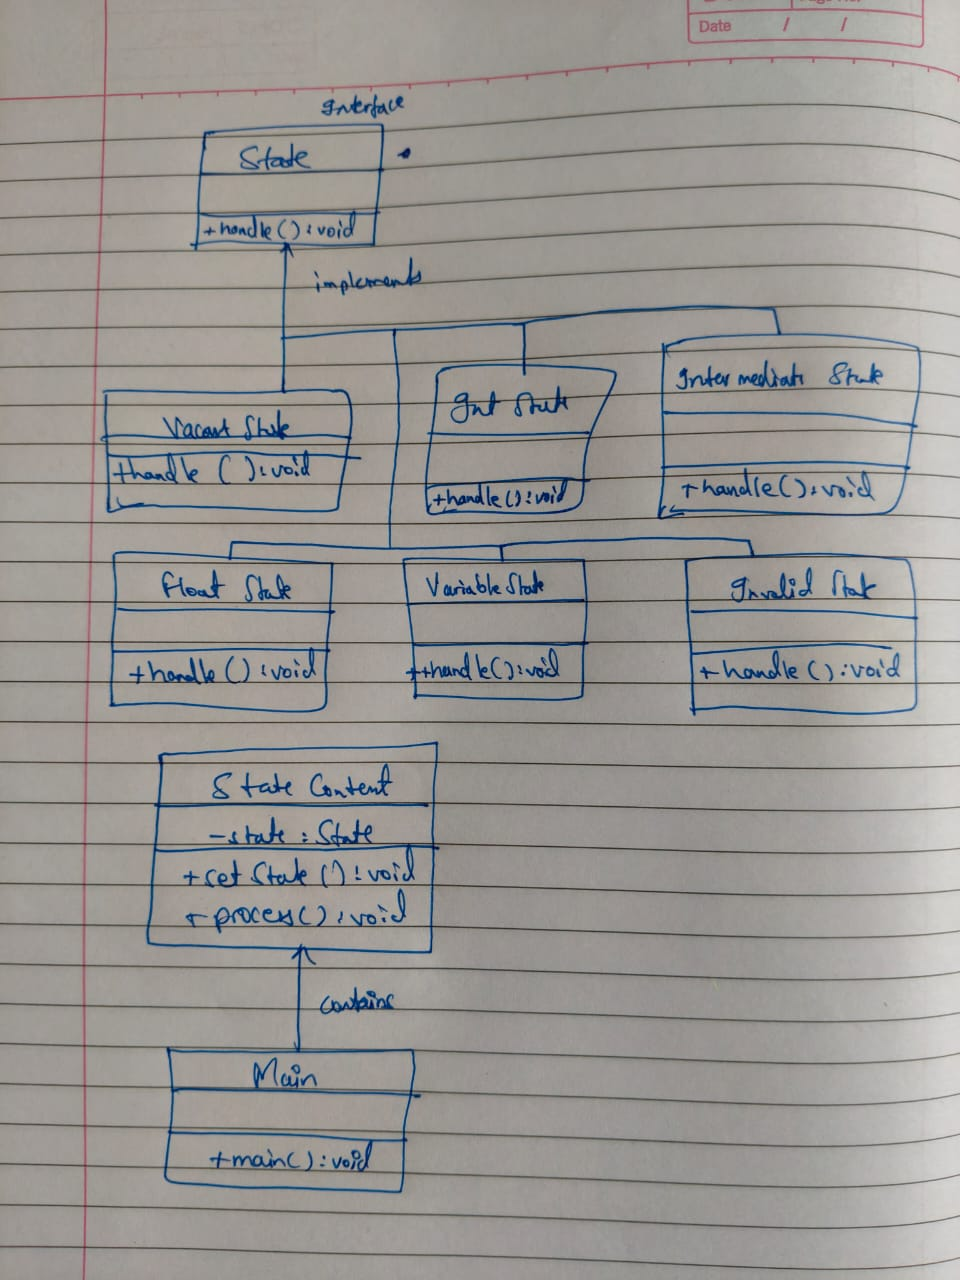 Date / /
Interface
State
+handle() : void
implements
Vacant State
+handle () : void
Int State
+handle() : void
Intermediate State
+handle() : void
Float State
+handle() : void
Variable State
++handle() : void
Invalid State
+handle() : void
State Content
-state : State
+set State () : void
+process() : void
contains
Main
+main() : void